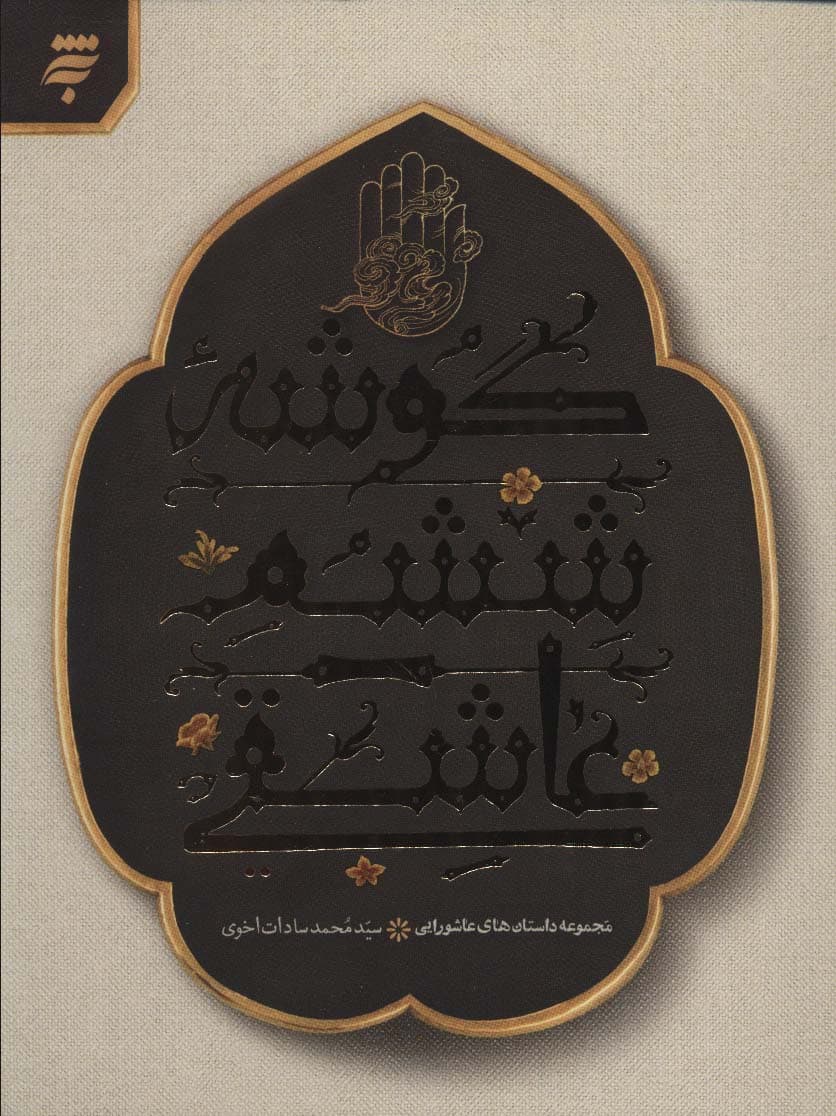 گوشهٔ
ششمِ
عاشقی
مجموعه داستان های عاشورایی * سیّد مُحمد سادات اخوی